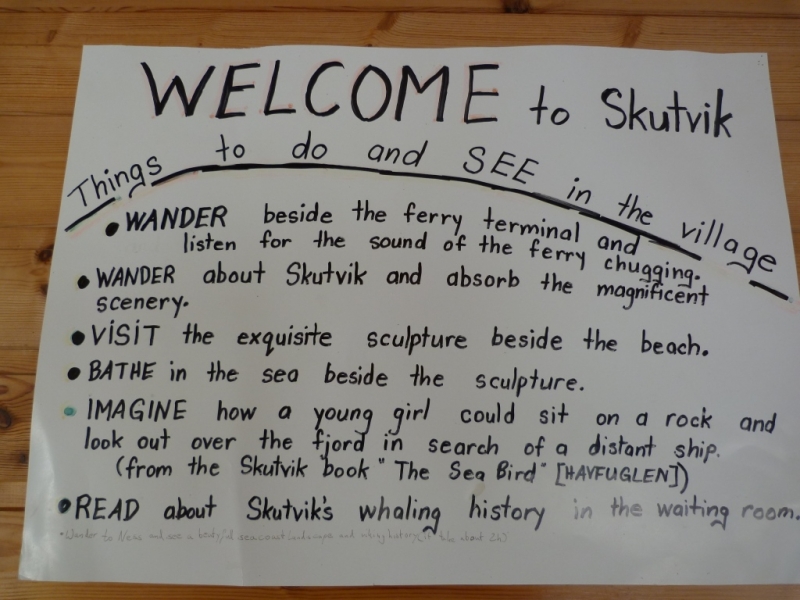 WELCOME to Skutvik
Things to do and SEE in the village
• WANDER beside the ferry terminal and
listen for the sound of the ferry chugging.
• WANDER about Skutvik and absorb the magnificent
scenery.
• VISIT the exquisite sculpture beside the beach.
• BATHE in the sea beside the sculpture.
• IMAGINE how a young girl could sit on a rock and
look out over the fjord in search of a distant ship.
(from the Skutvik book "The Sea Bird" [HAVFUGLEN])
• READ about Skutvik's whaling history in the waiting room.
• Wander to Ness and see a